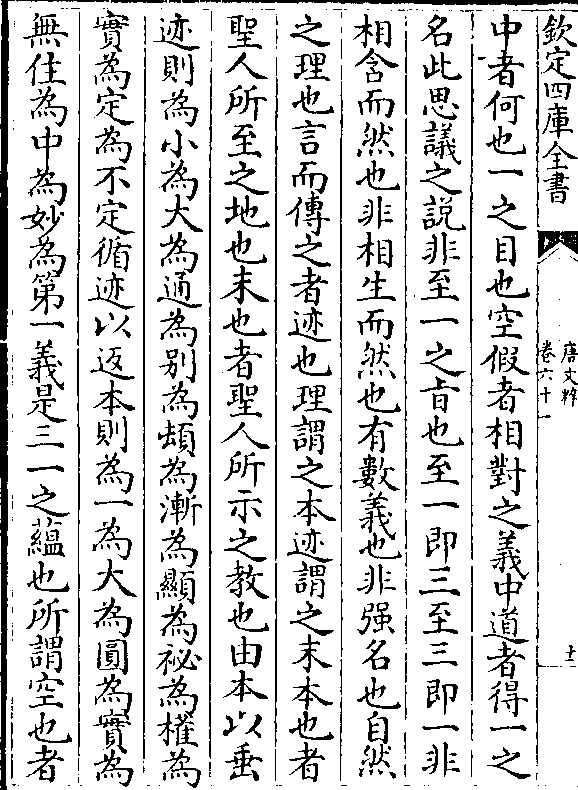 欽定四庫全書
唐文粹
卷六十一
十一
中者何也一之目也空假者相對之義中道者得一之
名此思議之說非至一之旨也至一即三至三即一非
相含而然也非相生而然也有數義也非强名也自然
之理也言而傳之者迹也理謂之本迹謂之末本也者
聖人所至之地也末也者聖人所示之教也由本以垂
迹則為小為大為通為别為頓為漸為顯為祕為權為
實為定為不定循迹以返本則為一為大為圓為實為
無住為中為妙為第一義是三一之蘊也所謂空也者